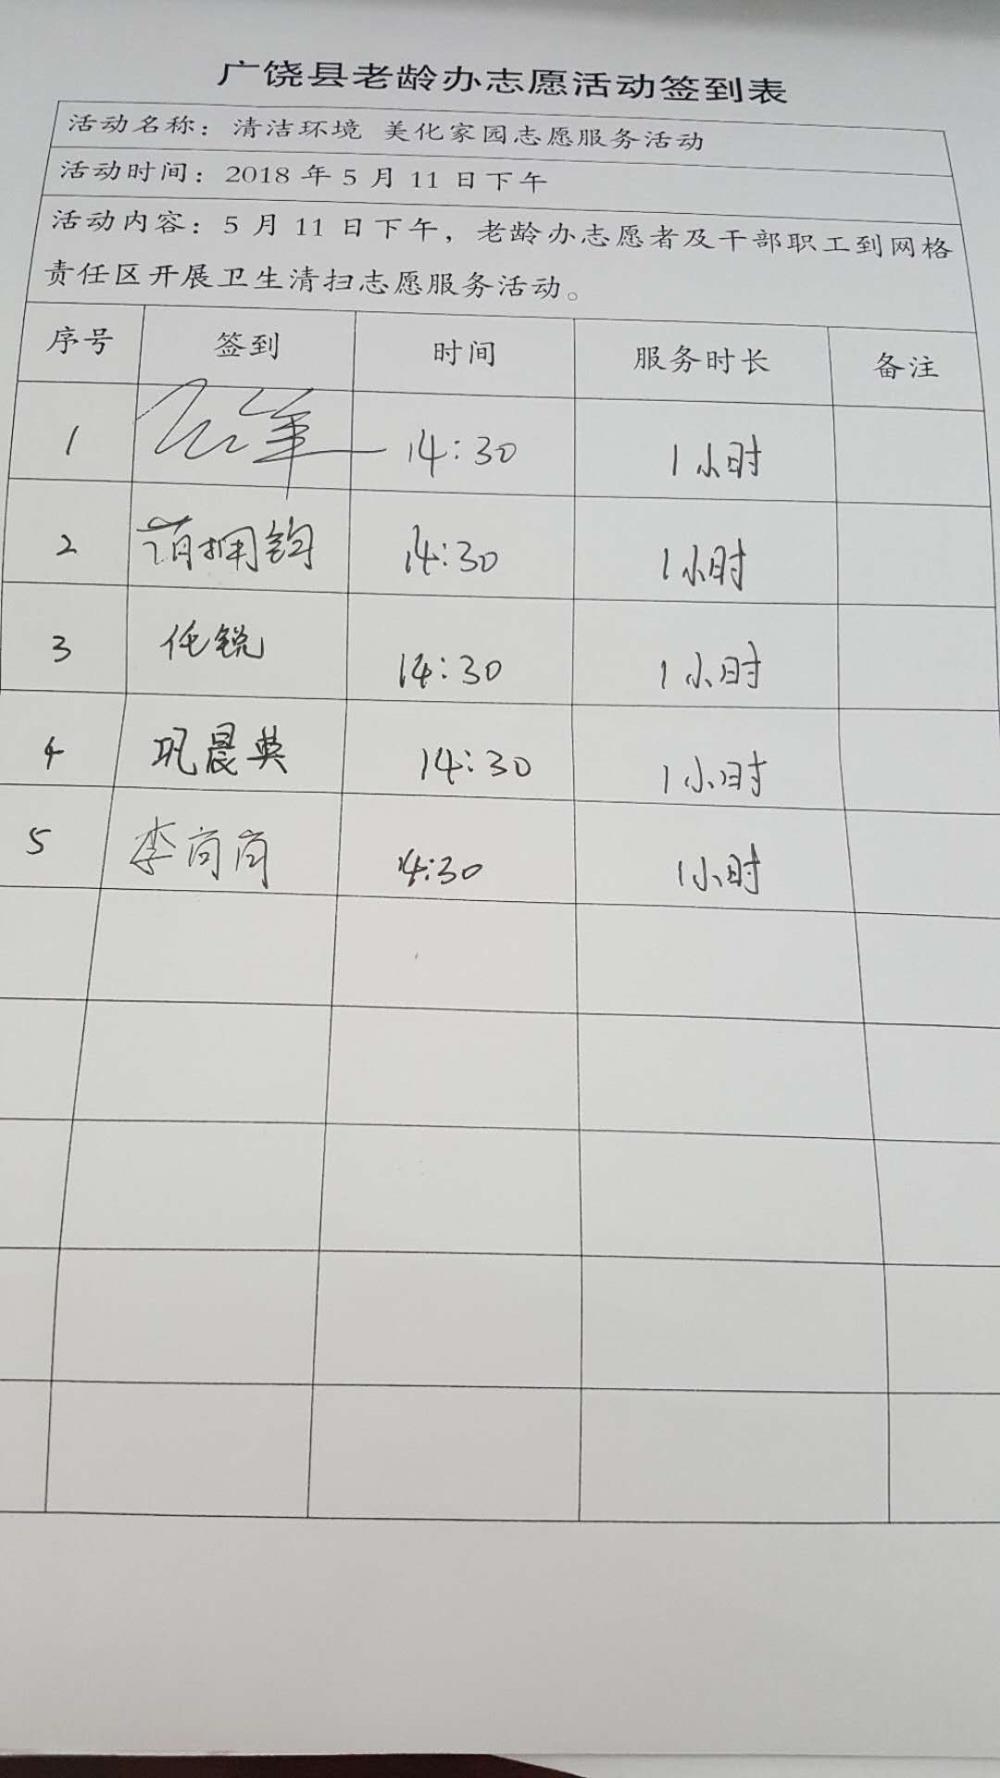 广饶县老龄办志愿活动签到表
活动名称：清洁环境 美化家园志愿服务活动
活动时间：2018 年 5 月 11 日下午
活动内容：5 月 11 日下午，老龄办志愿者及干部职工到网格
责任区开展卫生清扫志愿服务活动。
序号 签到 时间 服务时长 备注
1 14:30 1小时
2 14:30 1小时
3 任锐 14:30 1小时
4 巩晨英 14:30 1小时
5 李尚尚 14:30 1小时